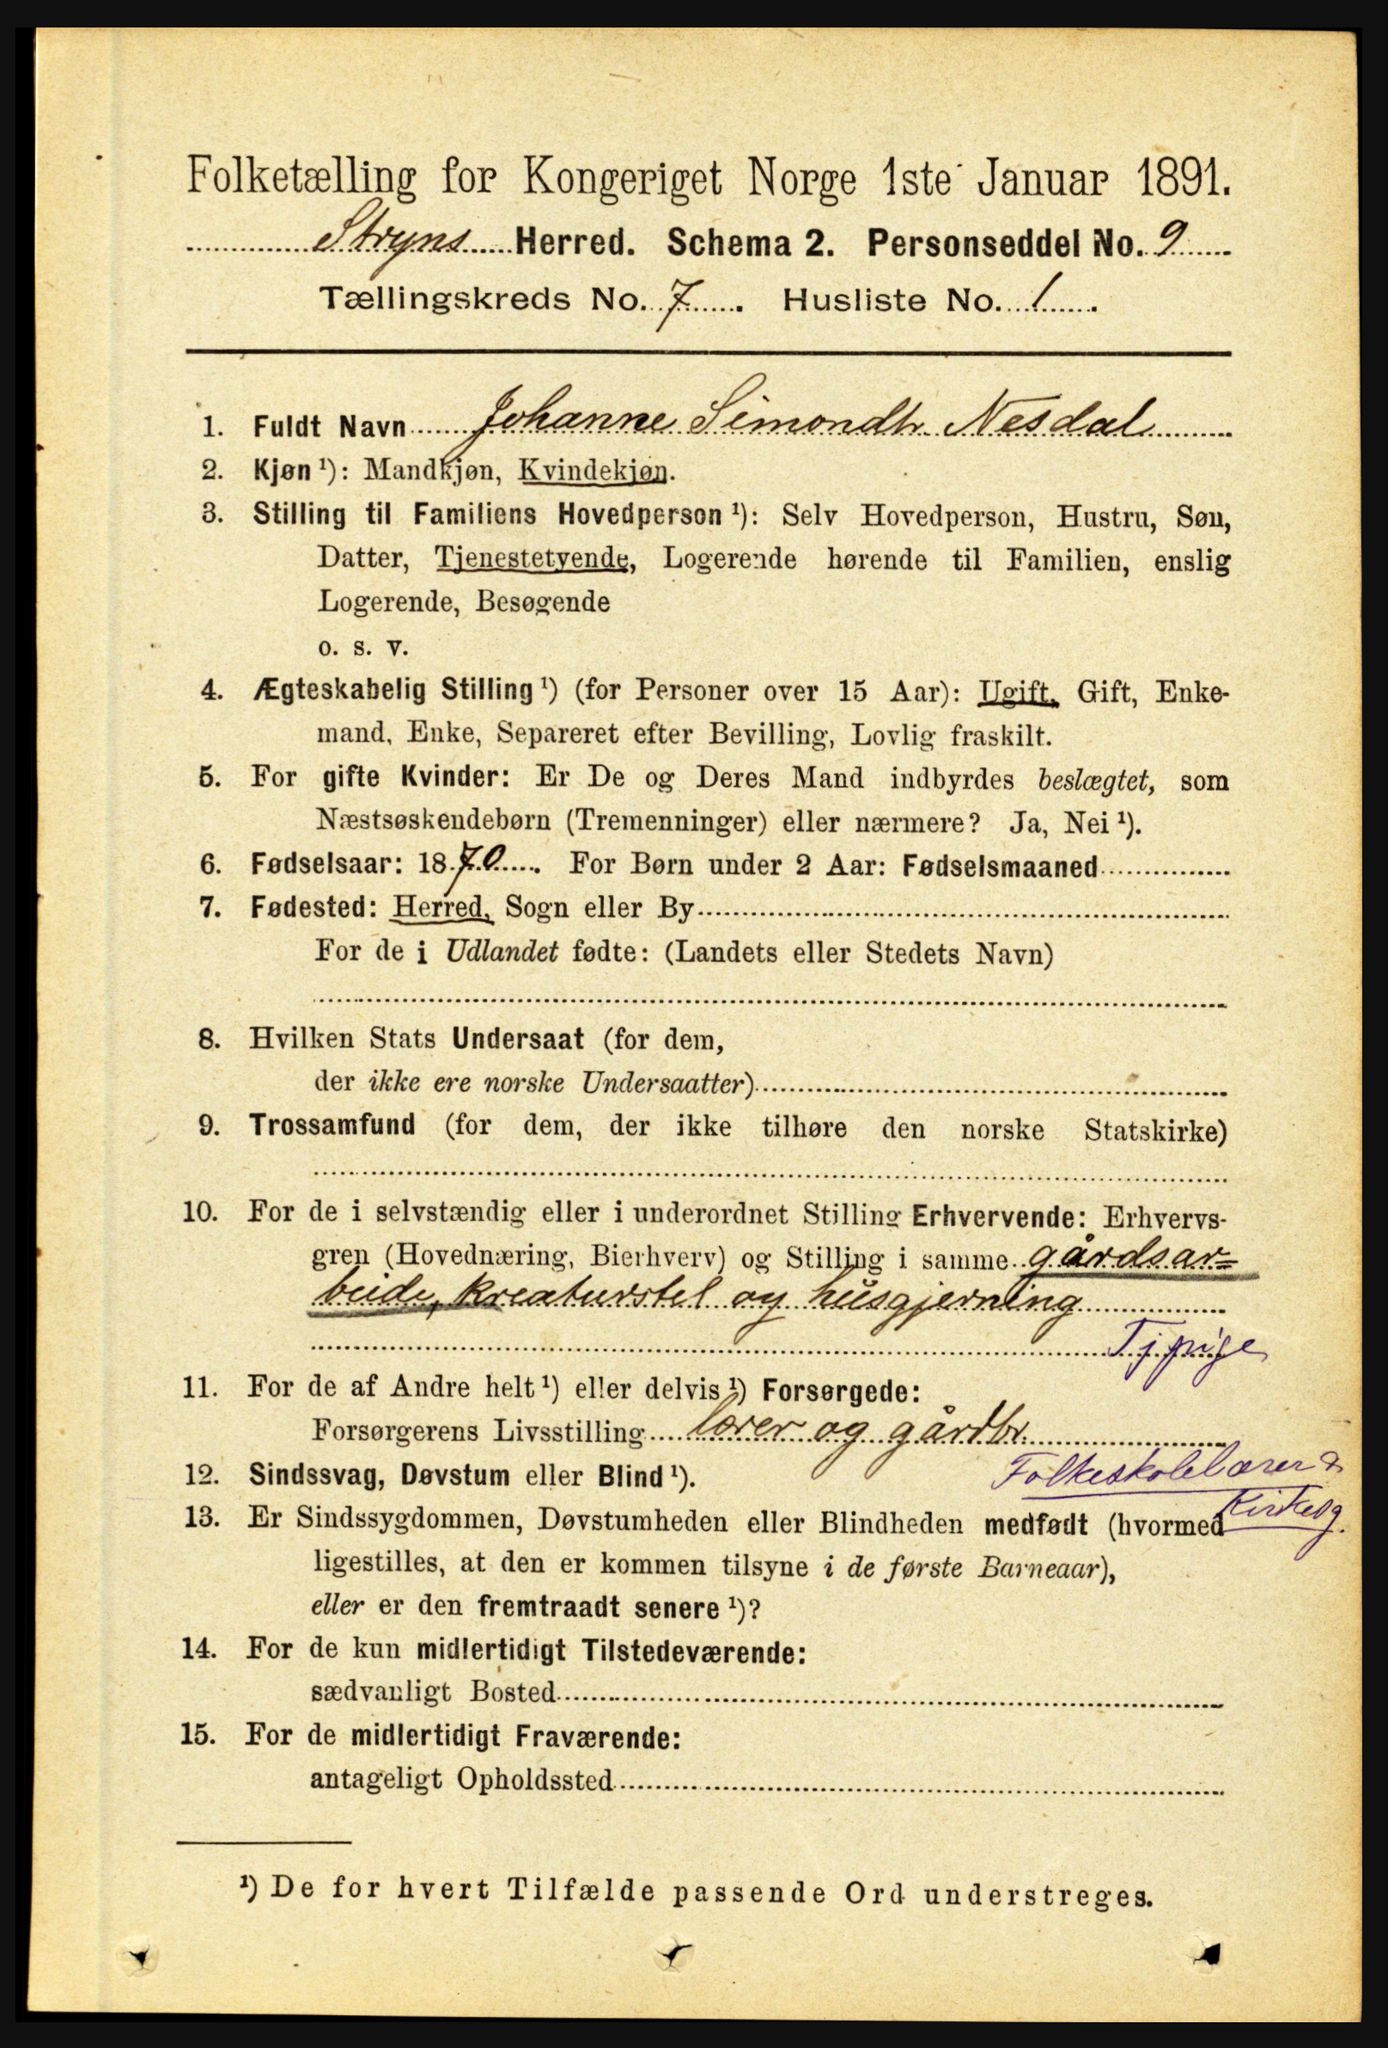 Folketælling for Kongeriget Norge 1ste Januar 1891.
Stryns Herred. Schema 2. Personseddel No. 9
Tællingskreds No. 7. Husliste No. 1.
1. Fuldt Navn Johanne Simondtr. Nesdal
2. Kjøn ¹): Mandkjøn, Kvindekjøn.
3. Stilling til Familiens Hovedperson ¹): Selv Hovedperson, Hustru, Søn,
Datter, Tjenestetyende, Logerende hørende til Familien, enslig
Logerende, Besøgende
o. s. v.
4. Ægteskabelig Stilling ¹) (for Personer over 15 Aar): Ugift, Gift, Enke-
mand, Enke, Separeret efter Bevilling, Lovlig fraskilt.
5. For gifte Kvinder: Er De og Deres Mand indbyrdes beslægtet, som
Næstsøskendebørn (Tremenninger) eller nærmere? Ja, Nei ¹).
6. Fødselsaar: 1870. For Børn under 2 Aar: Fødselsmaaned
7. Fødested: Herred, Sogn eller By
For de i Udlandet fødte: (Landets eller Stedets Navn)
8. Hvilken Stats Undersaat (for dem,
der ikke ere norske Undersaatter)
9. Trossamfund (for dem, der ikke tilhøre den norske Statskirke)
10. For de i selvstændig eller i underordnet Stilling Erhvervende: Erhvervs-
gren (Hovednæring, Bierhverv) og Stilling i samme gårdsar=
beide, kreaturstel og husgjerning
Tj pige
11. For de af Andre helt ¹) eller delvis ¹) Forsørgede:
Forsørgerens Livsstilling lærer og gårdbr.
12. Sindssvag, Døvstum eller Blind ¹).
Folkeskolelærer &
Kirkesg.
13. Er Sindssygdommen, Døvstumheden eller Blindheden medfødt (hvormed
ligestilles, at den er kommen tilsyne i de første Barneaar),
eller er den fremtraadt senere ¹)?
14. For de kun midlertidigt Tilstedeværende:
sædvanligt Bosted
15. For de midlertidigt Fraværende:
antageligt Opholdssted
¹) De for hvert Tilfælde passende Ord understreges.